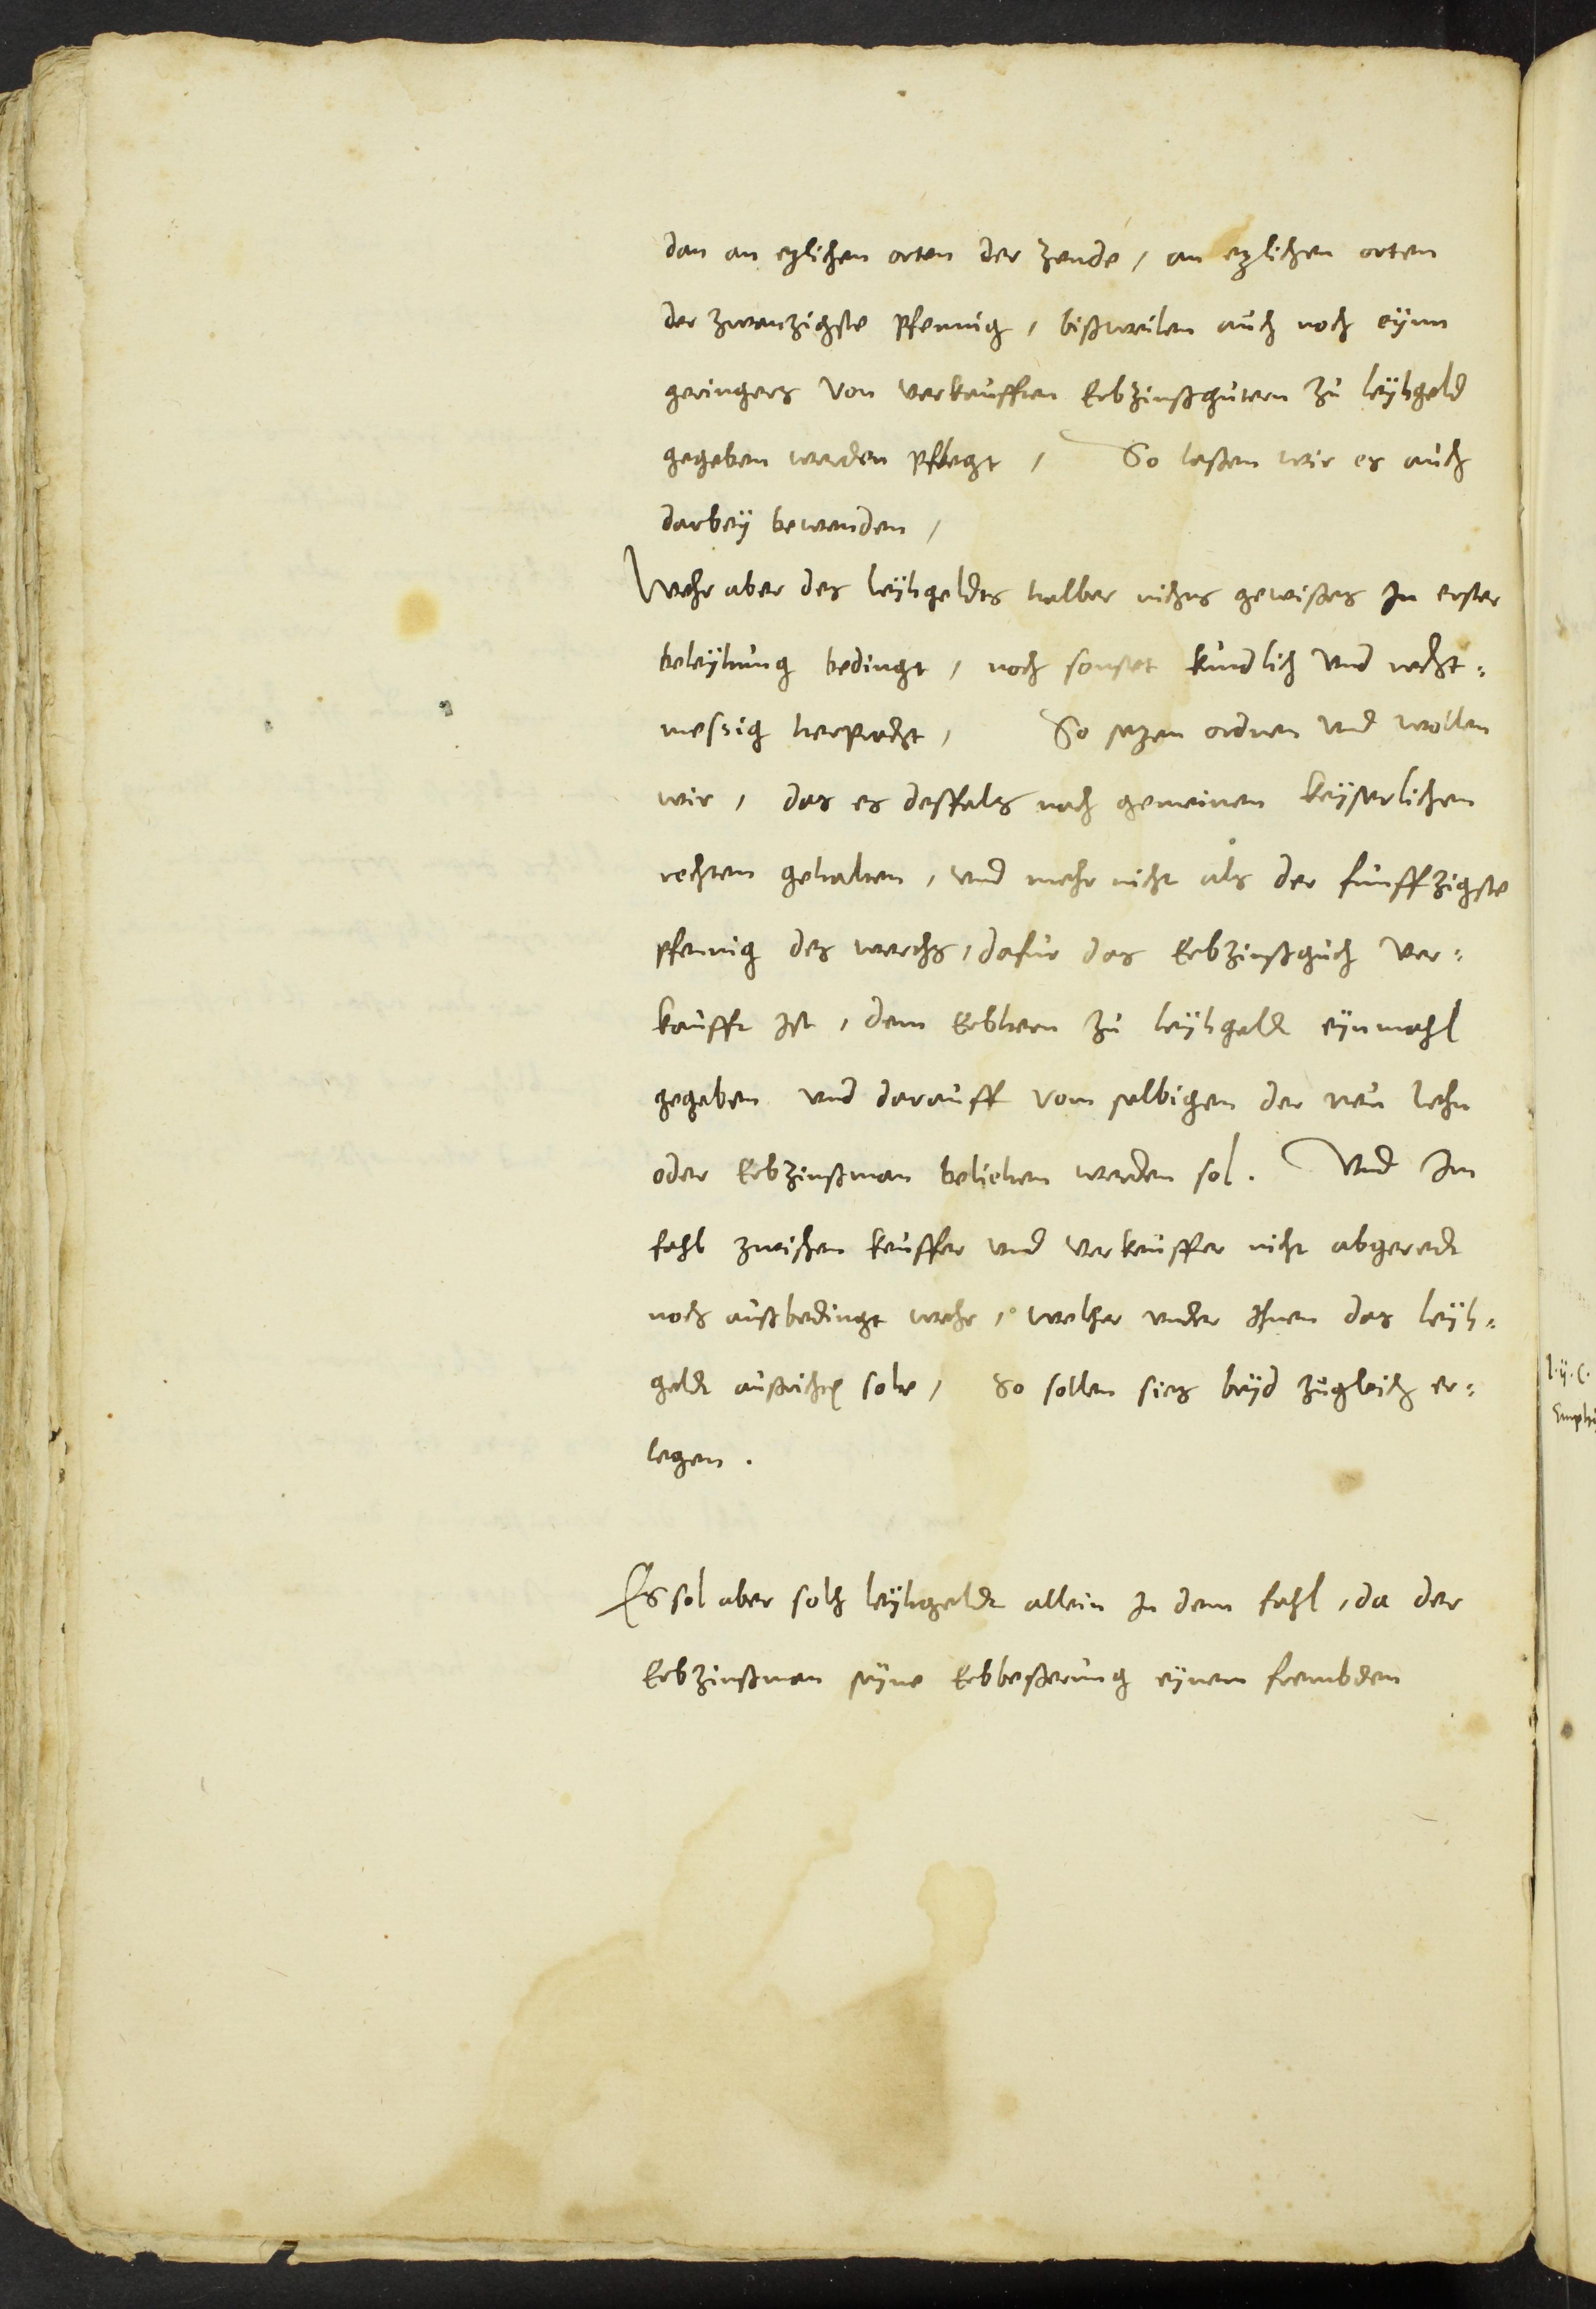 dan an ezlichen orten der zende, an ezlichen orten
der zwenzigste pfennig, bißweilen auch noch eynn
geringers von verkaufften Erbzinßgutern zu leyhgeld
gegeben werden pflegt, So laßen wir es auch
darbey bewenden,
Wehr aber des leyhgeldts halber nichts gewißes In erster
beleyhung bedingt, noch sonstet kundlich und recht-
messig herpracht, So sezen ordnen und wollen
wir, das es desfals nach gemeinen keyserlichen
rechten gehalten, und mehr nicht als der funffzigste
pfennig des werths, dafur das Erbzinßguth ver-
kaufft ist, dem Erbhern zu leyhgeldt eynmahl
gegeben und darauff vom selbigen der neu lehn
oder Erbzinßman beliehen werden sol. Und Im
fahl zwischen keuffer und verkeuffer nicht abgeredt
noch außbedingt wehr, welcher under Ihnen das leyh-
geldt außrichten solte, So sollen sies beyd zugleich er-
legen.
Es sol aber solch leyhgeldt allein In dem fahl, da der
Erbzinßman seyne Erbbeßerung eynem frembden
l. ij. C.